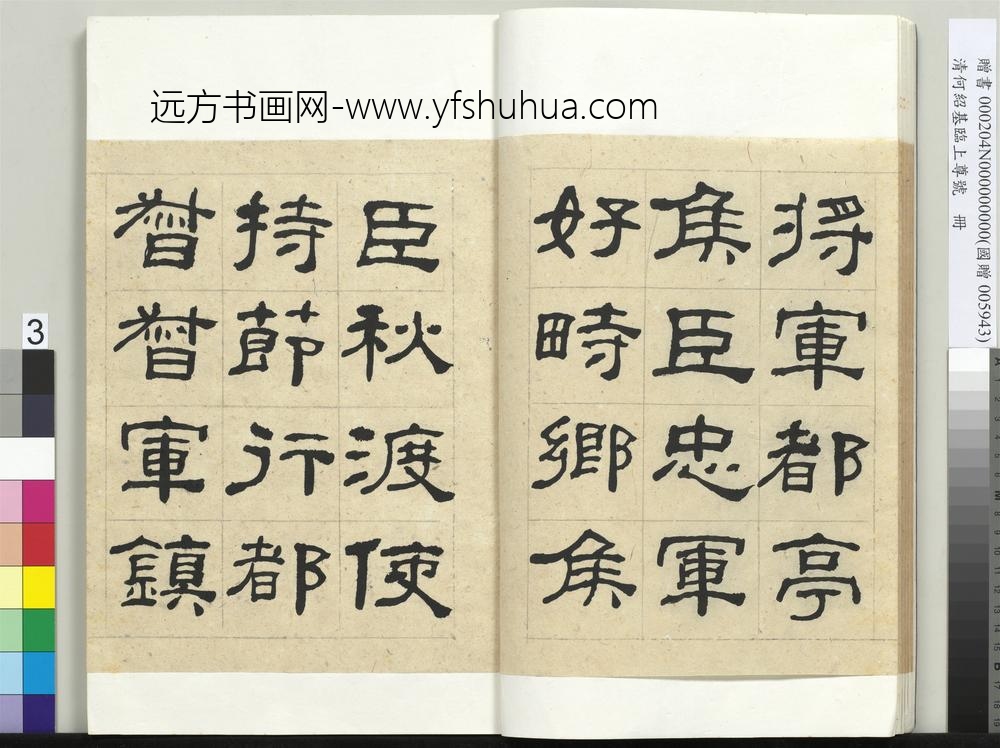 远方书画网-www.yfshuhua.com
贈書 000204N000000000(國贈 005943)
清何紹基臨上尊號 冊
将軍都亭
侯臣忠軍
好畤鄉侯
臣秋渡使
持節行都
督督軍鎮
3